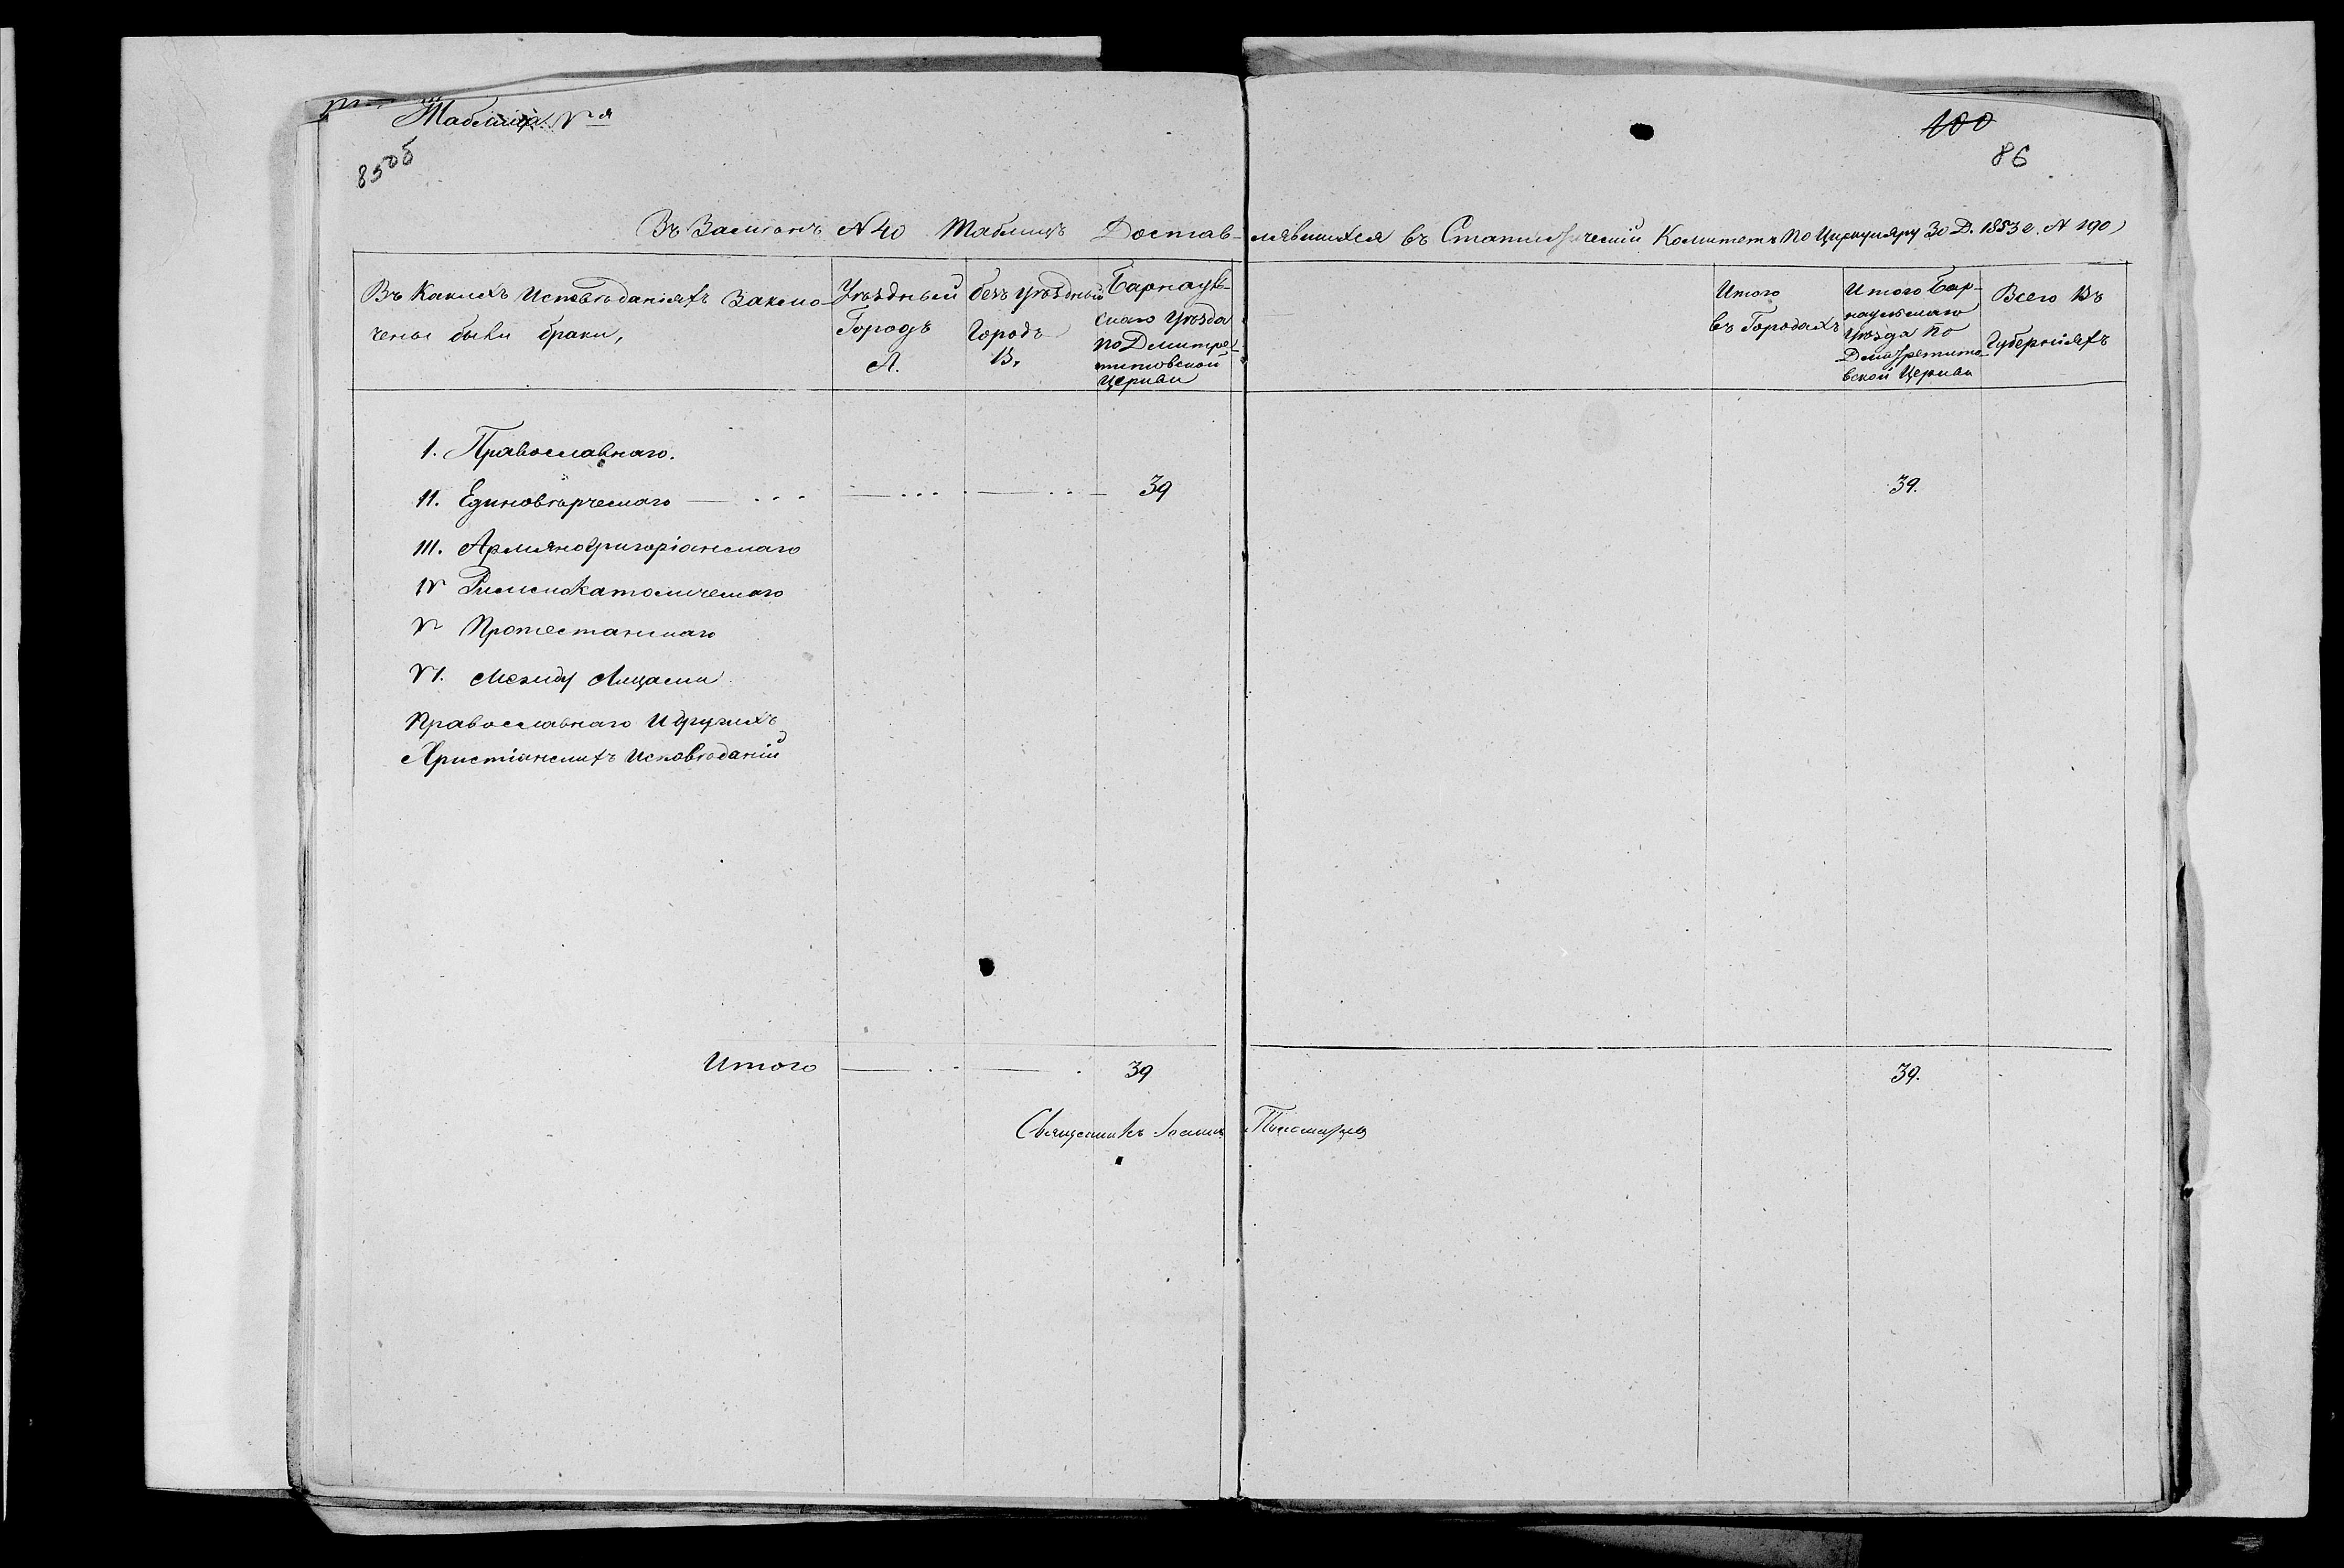 Таблица V я
85об
100
86
Въ Замѣнъ N 40 Таблицъ Доставлявшихся въ Статистическій Комитетъ по Циркуляру 30 Д. 1853 г. N 190
Въ Какихъ Исповѣданіяхъ Заклю-
чены были браки,
Уѣздный
Городъ
А.
безъ уѣздный
Городъ
В,
Барнауль-
скаго уѣзда
по Дмитре-
титовской
Церкви
Итого
въ Городахъ
Итого Бар-
наульскаго
уѣзда по
Дмитретито-
вской Церкви
Всего Въ
Губерніяхъ
I. Православнаго.
II. Единовѣрческаго 39 39.
III. Армяногригоріанскаго
IV Римскокатолическаго
V Протестанскаго
VI. Между Лицами
Православнаго И другихъ
Христіанскихъ Исповѣданій
Итого 39 39.
Священникъ Іоаннъ